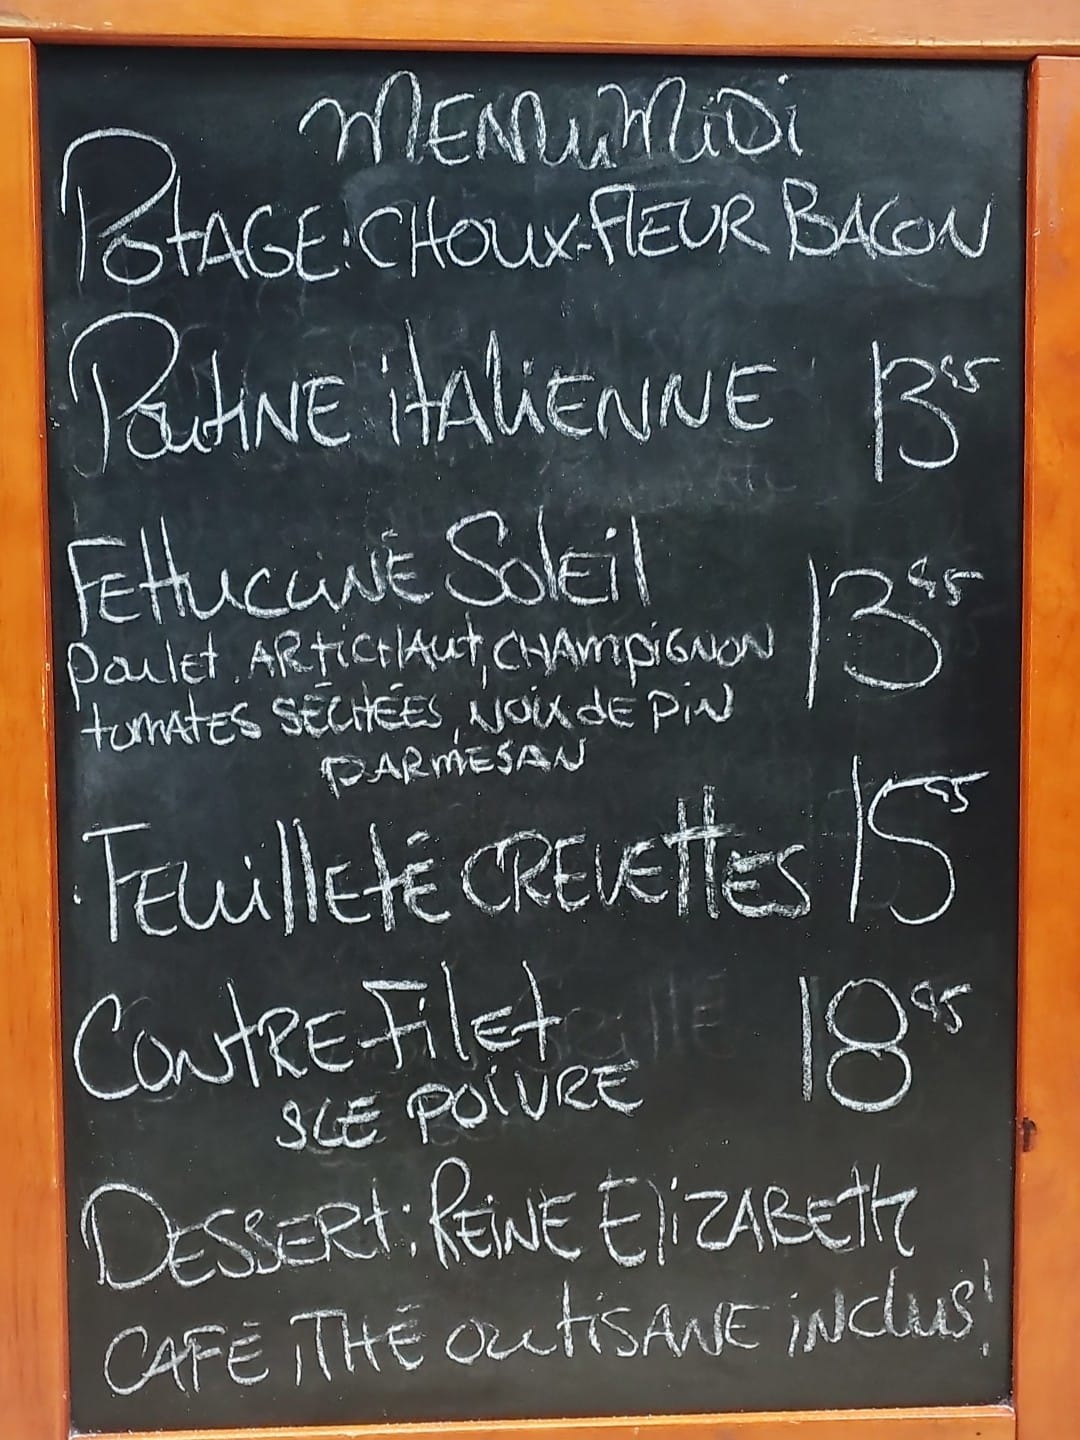 MENU MIDI
POTAGE: CHOUX-FLEUR BACON
POUTINE ITALIENNE 13 95
FETTUCCINÉ SOLEIL 13 95
POULET, ARTICHAUT, CHAMPIGNON
TOMATES SÉCHÉES, NOIX DE PIN
PARMESAN
FEUILLETÉ CREVETTES 15 95
CONTRE FILET 18 95
SCE POIVRE
DESSERT: REINE ELIZABETH
CAFÉ, THÉ OU TISANE INCLUS!